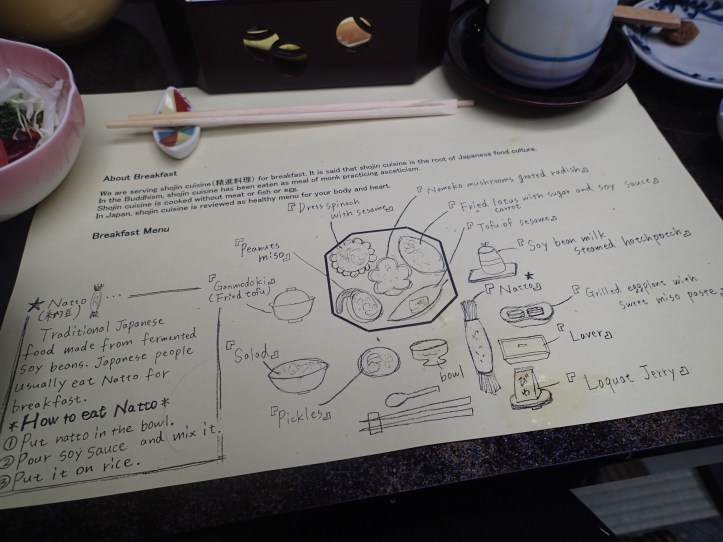 About Breakfast
We are serving shojin cuisine(精進料理) for breakfast. It is said that shojin cuisine is the root of Japanese food culture.
In the Buddhism, shojin cuisine has been eaten as meal of monk practicing asceticism.
Shojin cuisine is cooked without meat or fish or egg.
In Japan, shojin cuisine is reviewed as healthy menu for your body and heart.
Breakfast Menu
『Dress spinach
with sesame』
『Nameko mushrooms grated radish』
『Fried lotus with sugar and soy sauce』
carrot
『Tofu of sesame』
『Peanuts
miso』
『Soy bean milk
steamed hotchpotch』
『Ganmodoki
(Fried tofu)』
『Natto』★
『Grilled eggplant with
sweet miso paste』
『Salad』
『Laver』
『Pickles』
bowl
びわ
『Loquat Jerry』
★ Natto ...
(納豆)
Traditional Japanese
food made from fermented
soy beans. Japanese people
usually eat Natto for
breakfast.
*How to eat Natto*
① Put natto in the bowl.
② Pour soy sauce and mix it.
③ Put it on rice.